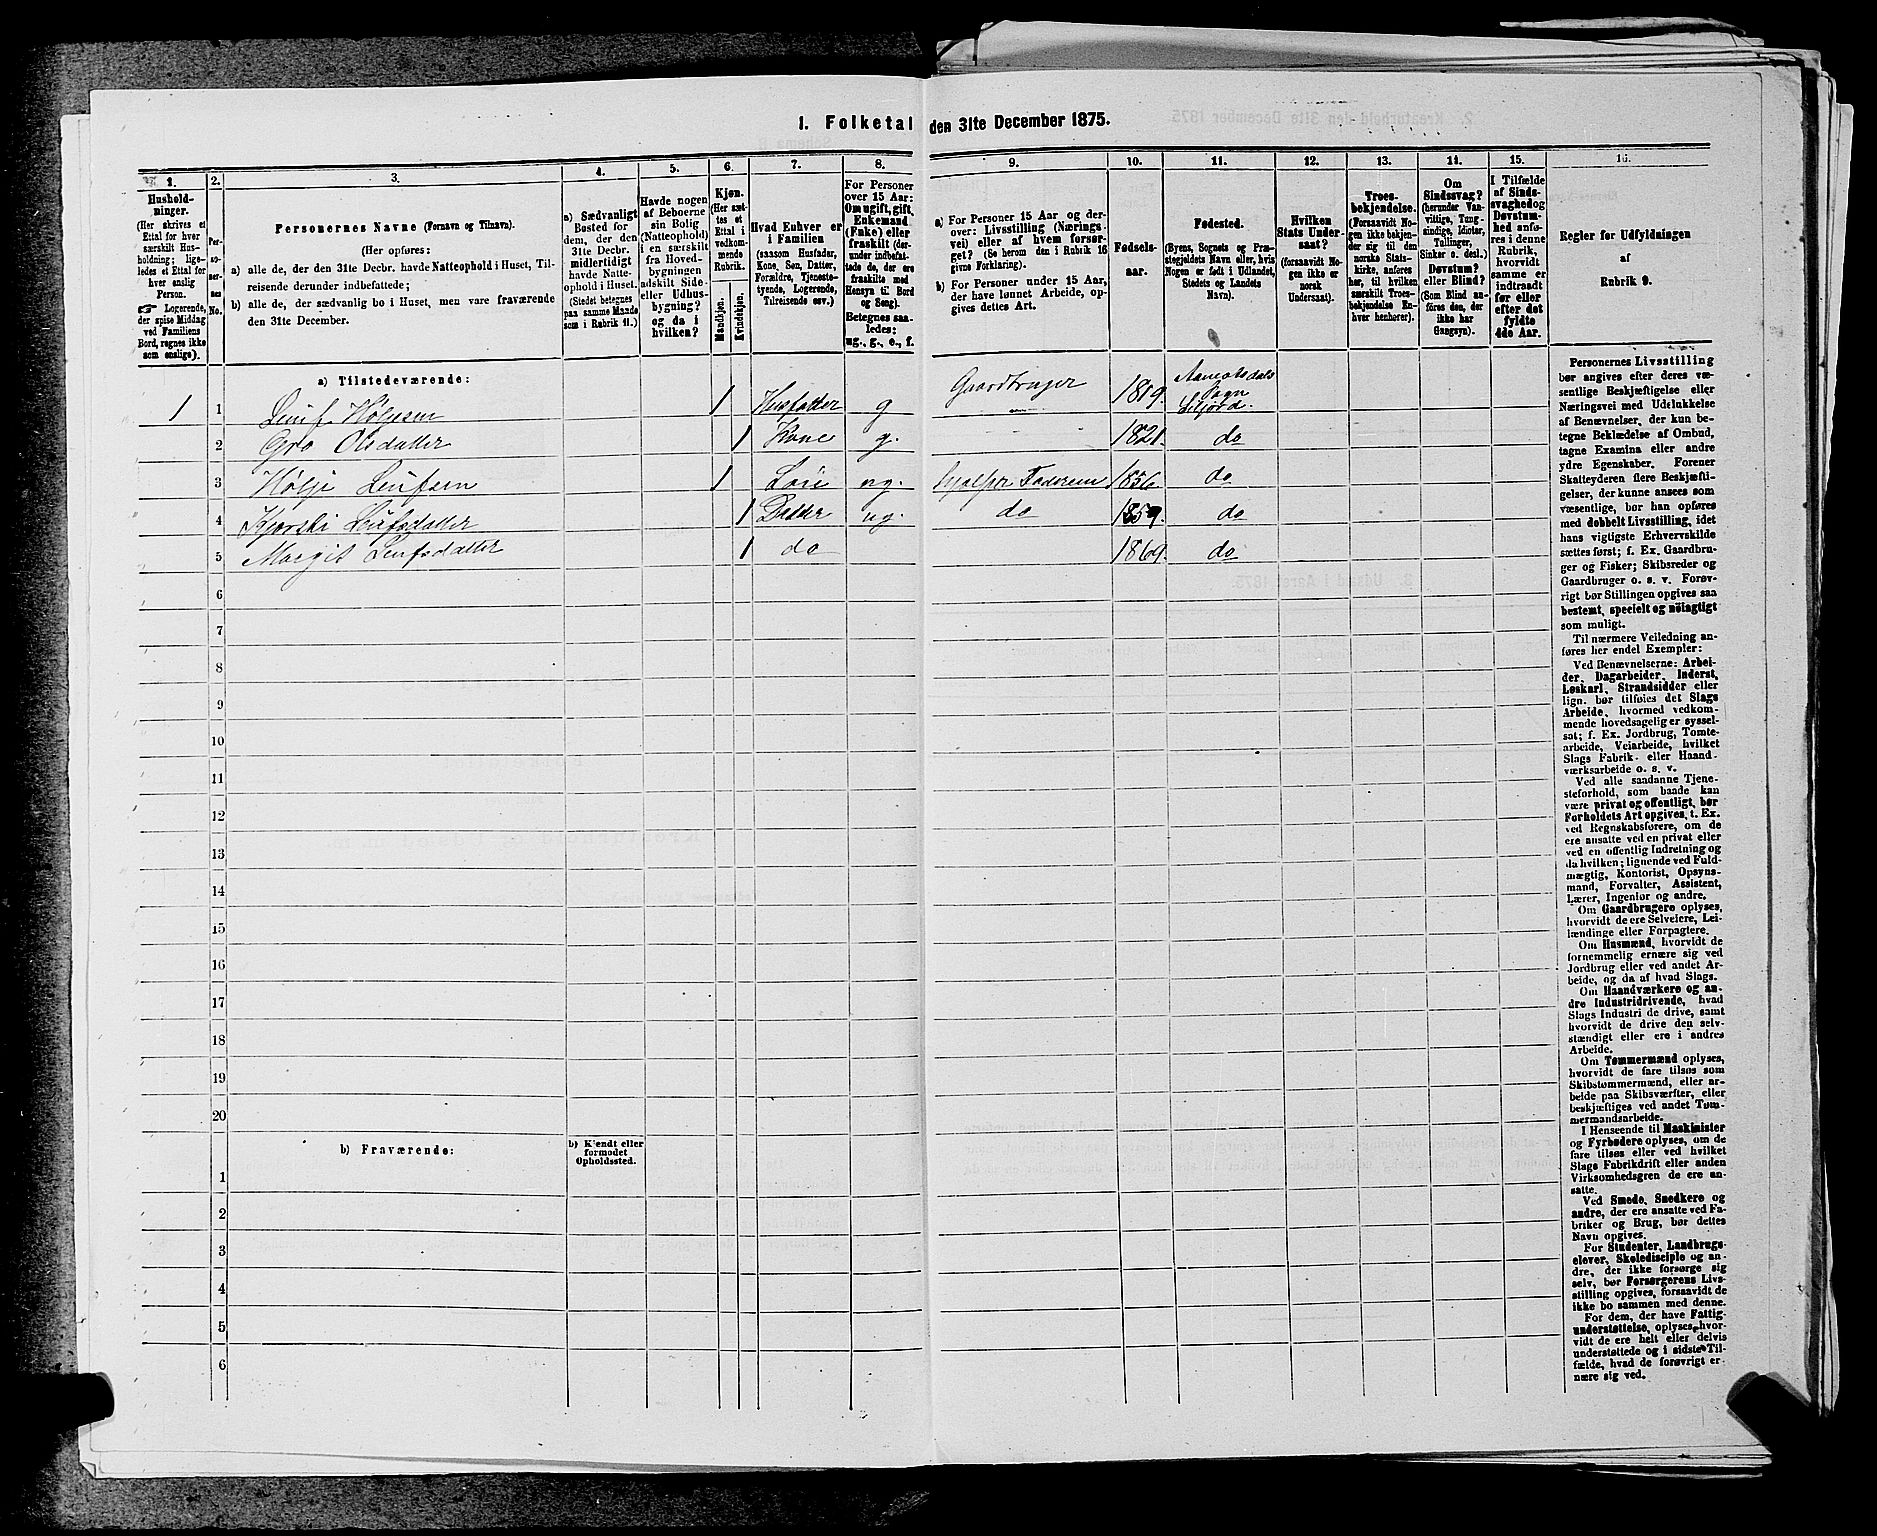 1. Folketal den 31te December 1875.
1. 2. 3. 4. 5. 6. 7. 8. 9. 10. 11. 12. 13. 14. 15. 16.
Hushold-
ninger.
(Her skrives et
Ettal for hver
særskilt Hus-
holdning; lige-
ledes et Ettal for
hver enslig
Person.
Logerende,
der spise Middag
ved Familiens
Bord, regnes ikke
som enslige).
Per-
so-
ner-
nes
No.
Personernes Navne (Fornavn og Tilnavn).
(Her opføres:
a) alle de, der den 31te Decbr. havde Natteophold i Huset, Til-
reisende derunder indbefattede;
b) alle de, der sædvanlig bo i Huset, men vare fraværende
den 31te December.
a) Sædvanligt
Bosted for
dem, der den
31te Decbr.
midlertidigt
havde Natte-
ophold i Huset.
(Stedet betegnes
paa samme Maade
som i Rubrik 11.)
Havde nogen
af Beboerne
sin Bolig
(Natteophold)
i en særskilt
fra Hoved-
bygningen
adskilt Side-
eller Udhus-
bygning?
og da i
hvilken?
Kjøn.
(Her sæt-
tes et
Ettal i
vedkom-
mende
Rubrik.
Mandkjøn.
Kvindekjøn.
Hvad Enhver er
i Familien
(saasom Husfader,
Kone, Søn, Datter,
Forældre, Tjeneste-
tyende, Logerende,
Tilreisende osv.)
For Personer
over 15 Aar:
Om ugift, gift,
Enkemand
(Enke) eller
fraskilt (der-
under indbefat-
tede de, der ere
fraskilte med
Hensyn til Bord
og Seng).
Betegnes saa-
ledes:
ug., g., e., f.
a) For Personer 15 Aar og der-
over: Livsstilling (Nærings-
vei) eller af hvem forsør-
get? (Se herom den i Rubrik 16
givne Forklaring).
b) For Personer under 15 Aar,
der have lønnet Arbeide, op-
gives dettes Art.
Fødsels-
aar.
Fødested.
(Byens, Sognets og Præ-
stegjeldets Navn eller, hvis
Nogen er født i Udlandet,
Stedets og Landets
Navn).
Hvilken
Stats Under-
saat?
(forsaavidt No-
gen ikke er
norsk
Undersaat).
Troes-
bekjendelse.
(Forsaavidt No-
gen ikke bekjen-
der sig til den
norske Stats-
kirke, anføres
her, til hvilken
særskilt Troes-
bekjendelse En-
hver henhører).
Om
Sindssvag?
(herunder Van-
vittige, Tung-
sindige, Idioter,
Tullinger,
Sinker o. desl.)
Døvstum?
eller Blind?
(Som Blind an-
føres den, der
ikke har
Gangsyn).
I Tilfælde
af Sinds-
svaghed og
Døvstum-
hed anfø-
res i denne
Rubrik,
hvorvidt
samme er
indtraadt
før eller
efter det
fyldte
4de Aar.
Regler for Udfyldningen
af
Rubrik 9.
a) Tilstedeværende:
1 1 Leuf Höljesen 1 Husfatter g Gaardbruger 1819. Sogn Siljord.
2 Gro Olsdatter 1 Kone g. 1821. do
3 Hölje Leufsen 1 ug. hjælper Faderen 1856 do
4 Leufsdatter 1 Datter ug. do 1859. do
5 Margit Leufsdatter 1 do 1869. do
6
7
8
9
10
11
12
13
14
15
16
17
18
19
20
b) Fraværende:
b) Kjendt eller
formodet
Opholdssted.
1
2
3
4
5
6
Personernes Livsstilling
bør angives efter deres væ-
sentlige Beskjæftigelse eller
Næringsvei med Udelukkelse
af Benævnelser, der kun be-
tegne Beklædelse af Ombud,
tagne Examina eller andre
ydre Egenskaber. Forener
Skatteyderen flere Beskjæfti-
gelser, der kunne ansees som
væsentlige, bør han opføres
med dobbelt Livsstilling, idet
hans vigtigste Erhvervskilde
sættes først; f. Ex. Gaardbru-
ger og Fisker; Skibsreder og
Gaardbruger o. s. v. Forøv-
rigt bør Stillingen opgives saa
bestemt, specielt og nöiagtigt
som muligt.
Til nærmere Veiledning an-
føres her endel Exempler:
Ved Benævnelserne: Arbei-
der, Dagarbeider, Inderst,
Løskarl, Strandsidder eller
lign. bør tilføies det Slags
Arbeide, hvormed vedkom-
mende hovedsagelig er syssel-
sat; f. Ex. Jordbrug, Tomte-
arbeide, Veiarbeide, hvilket
Slags Fabrik- eller Haand-
værksarbeide o. s. v.
Ved alle saadanne Tjene-
steforhold, som baade kan
være privat og offentligt, bør
Forholdets Art opgives, t. Ex.
ved Regnskabsførere, om de
ere ansatte ved en privat eller
ved en offentlig Indretning og
da hvilken; lignende ved Fuld-
mægtig, Kontorist, Opsyns-
mand, Forvalter, Assistent,
Lærer, Ingeniør og andre.
Om Gaardbrugere oplyses,
hvorvidt de ere Selveiere, Lei-
lændinge eller Forpagtere.
Om Husmænd, hvorvidt de
fornemmelig ernære sig ved
Jordbrug eller ved andet Ar-
beide, og da af hvad Slags.
Om Haandværkere og an-
dre Industridrivende, hvad
Slags Industri de drive, samt
hvorvidt de drive den selv-
stændigt eller ere i andres
Arbeide.
Om Tømmermænd oplyses,
hvorvidt de fare tilsøs som
Skibstømmermænd, eller ar-
beide paa Skibsværfter, eller
beskjæftiges ved andet Tøm-
mermandsarbeide.
I Henseende til Maskinister
og Fyrbødere oplyses, om de
fare tilsøs eller ved hvilket
Slags Fabrikdrift eller anden
Virksomhedsgren de ere an-
satte.
Ved Smede, Snedkere og
andre, der ere ansatte ved Fa-
briker og Brug, bør dettes
Navn opgives.
For Studenter, Landbrugs-
elever, Skoledisciple og an-
dre, der ikke forsørge sig
selv, bør Forsørgerens Livs-
stilling opgives, forsaavidt de
ikke bo sammen med denne.
For dem, der have Fattig-
understøttelse, oplyses, hvor-
vidt de ere helt eller delvis
understøttede og i sidste Til-
fælde, hvad de forøvrigt er-
nære sig ved.